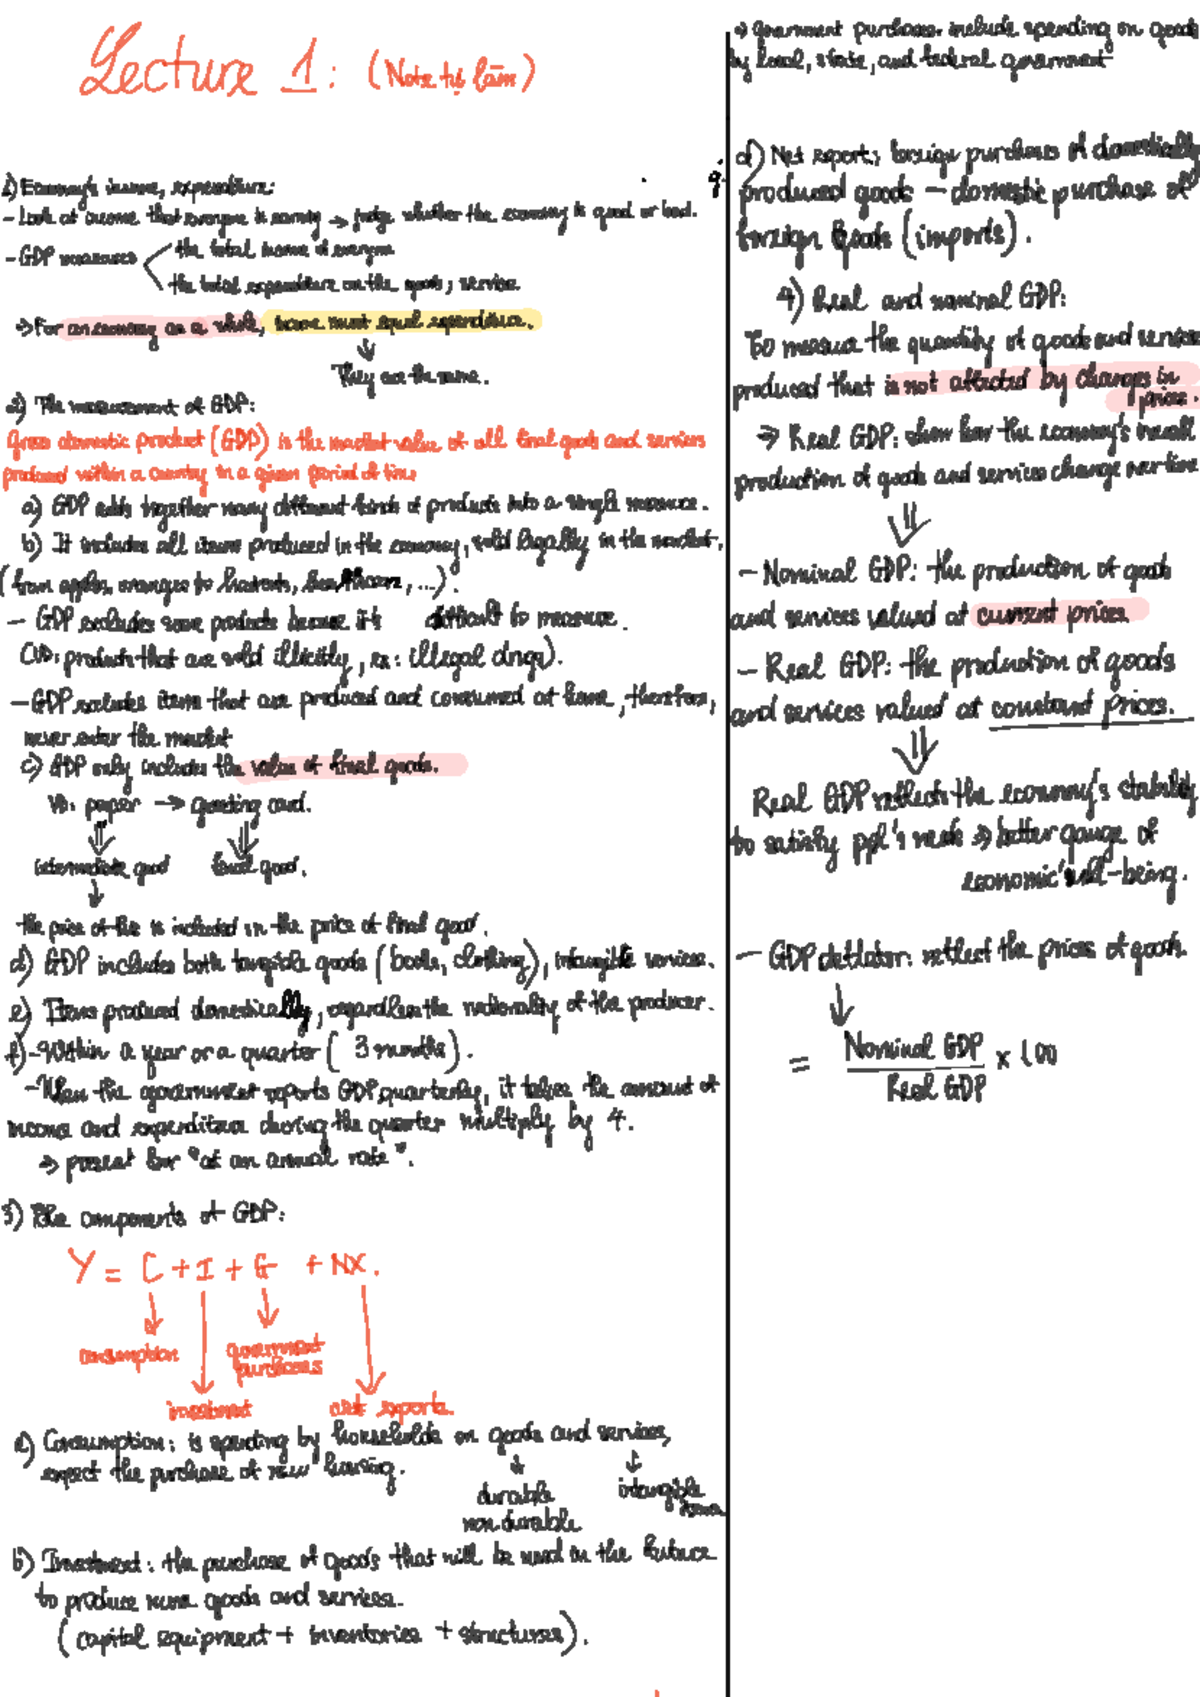 Lecture 1: (Note tự làm)
1) Economy's income, expenditure:
- Look at income that everyone is earning → judge whether the economy is good or bad.
- GDP measures
the total income of everyone
the total expenditure on the goods, service.
→ For an economy as a whole, income must equal expenditure.
They are the same.
2) The measurement of GDP:
Gross domestic product (GDP) is the market value of all final goods and services
produced within a country in a given period of time
a) GDP adds together many different kinds of products into a single measure.
b) It includes all items produced in the economy, sold legally in the market.
(from apples, oranges to haircuts, ...).
- GDP excludes some products because it's difficult to measure.
(VD: products that are sold illicitly, ex: illegal drugs).
- GDP excludes items that are produced and consumed at home, therefore,
never enter the market
c) GDP only includes the value of final goods.
VD: paper → greeting card.
intermediate good final good.
the price of this is included in the price of final good.
d) GDP includes both tangible goods (books, clothing), intangible services.
e) Items produced domestically, regardless the nationality of the producer.
f) - Within a year or a quarter (3 months).
- When the government reports GDP quarterly, it takes the amount of
income and expenditure during the quarter multiply by 4.
⇒ present for "at an annual rate".
3) The components of GDP:
Y = C + I + G + NX.
consumption
government
purchases
investment
net exports.
a) Consumption: is spending by households on goods and services,
expect the purchase of new housing.
durable
non durable
intangible
items
b) Investment: the purchase of goods that will be used in the future
to produce more goods and services.
(capital equipment + inventories + structures).
⇒ Government purchases include spending on goods
by local, state, and federal government
d) Net export: foreign purchases of domestically
produced goods - domestic purchase of
foreign goods (imports).
4) Real and nominal GDP:
To measure the quantity of goods and services
produced that is not affected by changes in
prices.
⇒ Real GDP: show how the economy's overall
production of goods and services change over time
- Nominal GDP: the production of goods
and services valued at current prices
- Real GDP: the production of goods
and services valued at constant prices.
Real GDP reflects the economy's stability
to satisfy ppl's needs ⇒ better gauge of
economic well-being.
- GDP deflator: reflect the prices of goods.
= Nominal GDP / Real GDP x 100